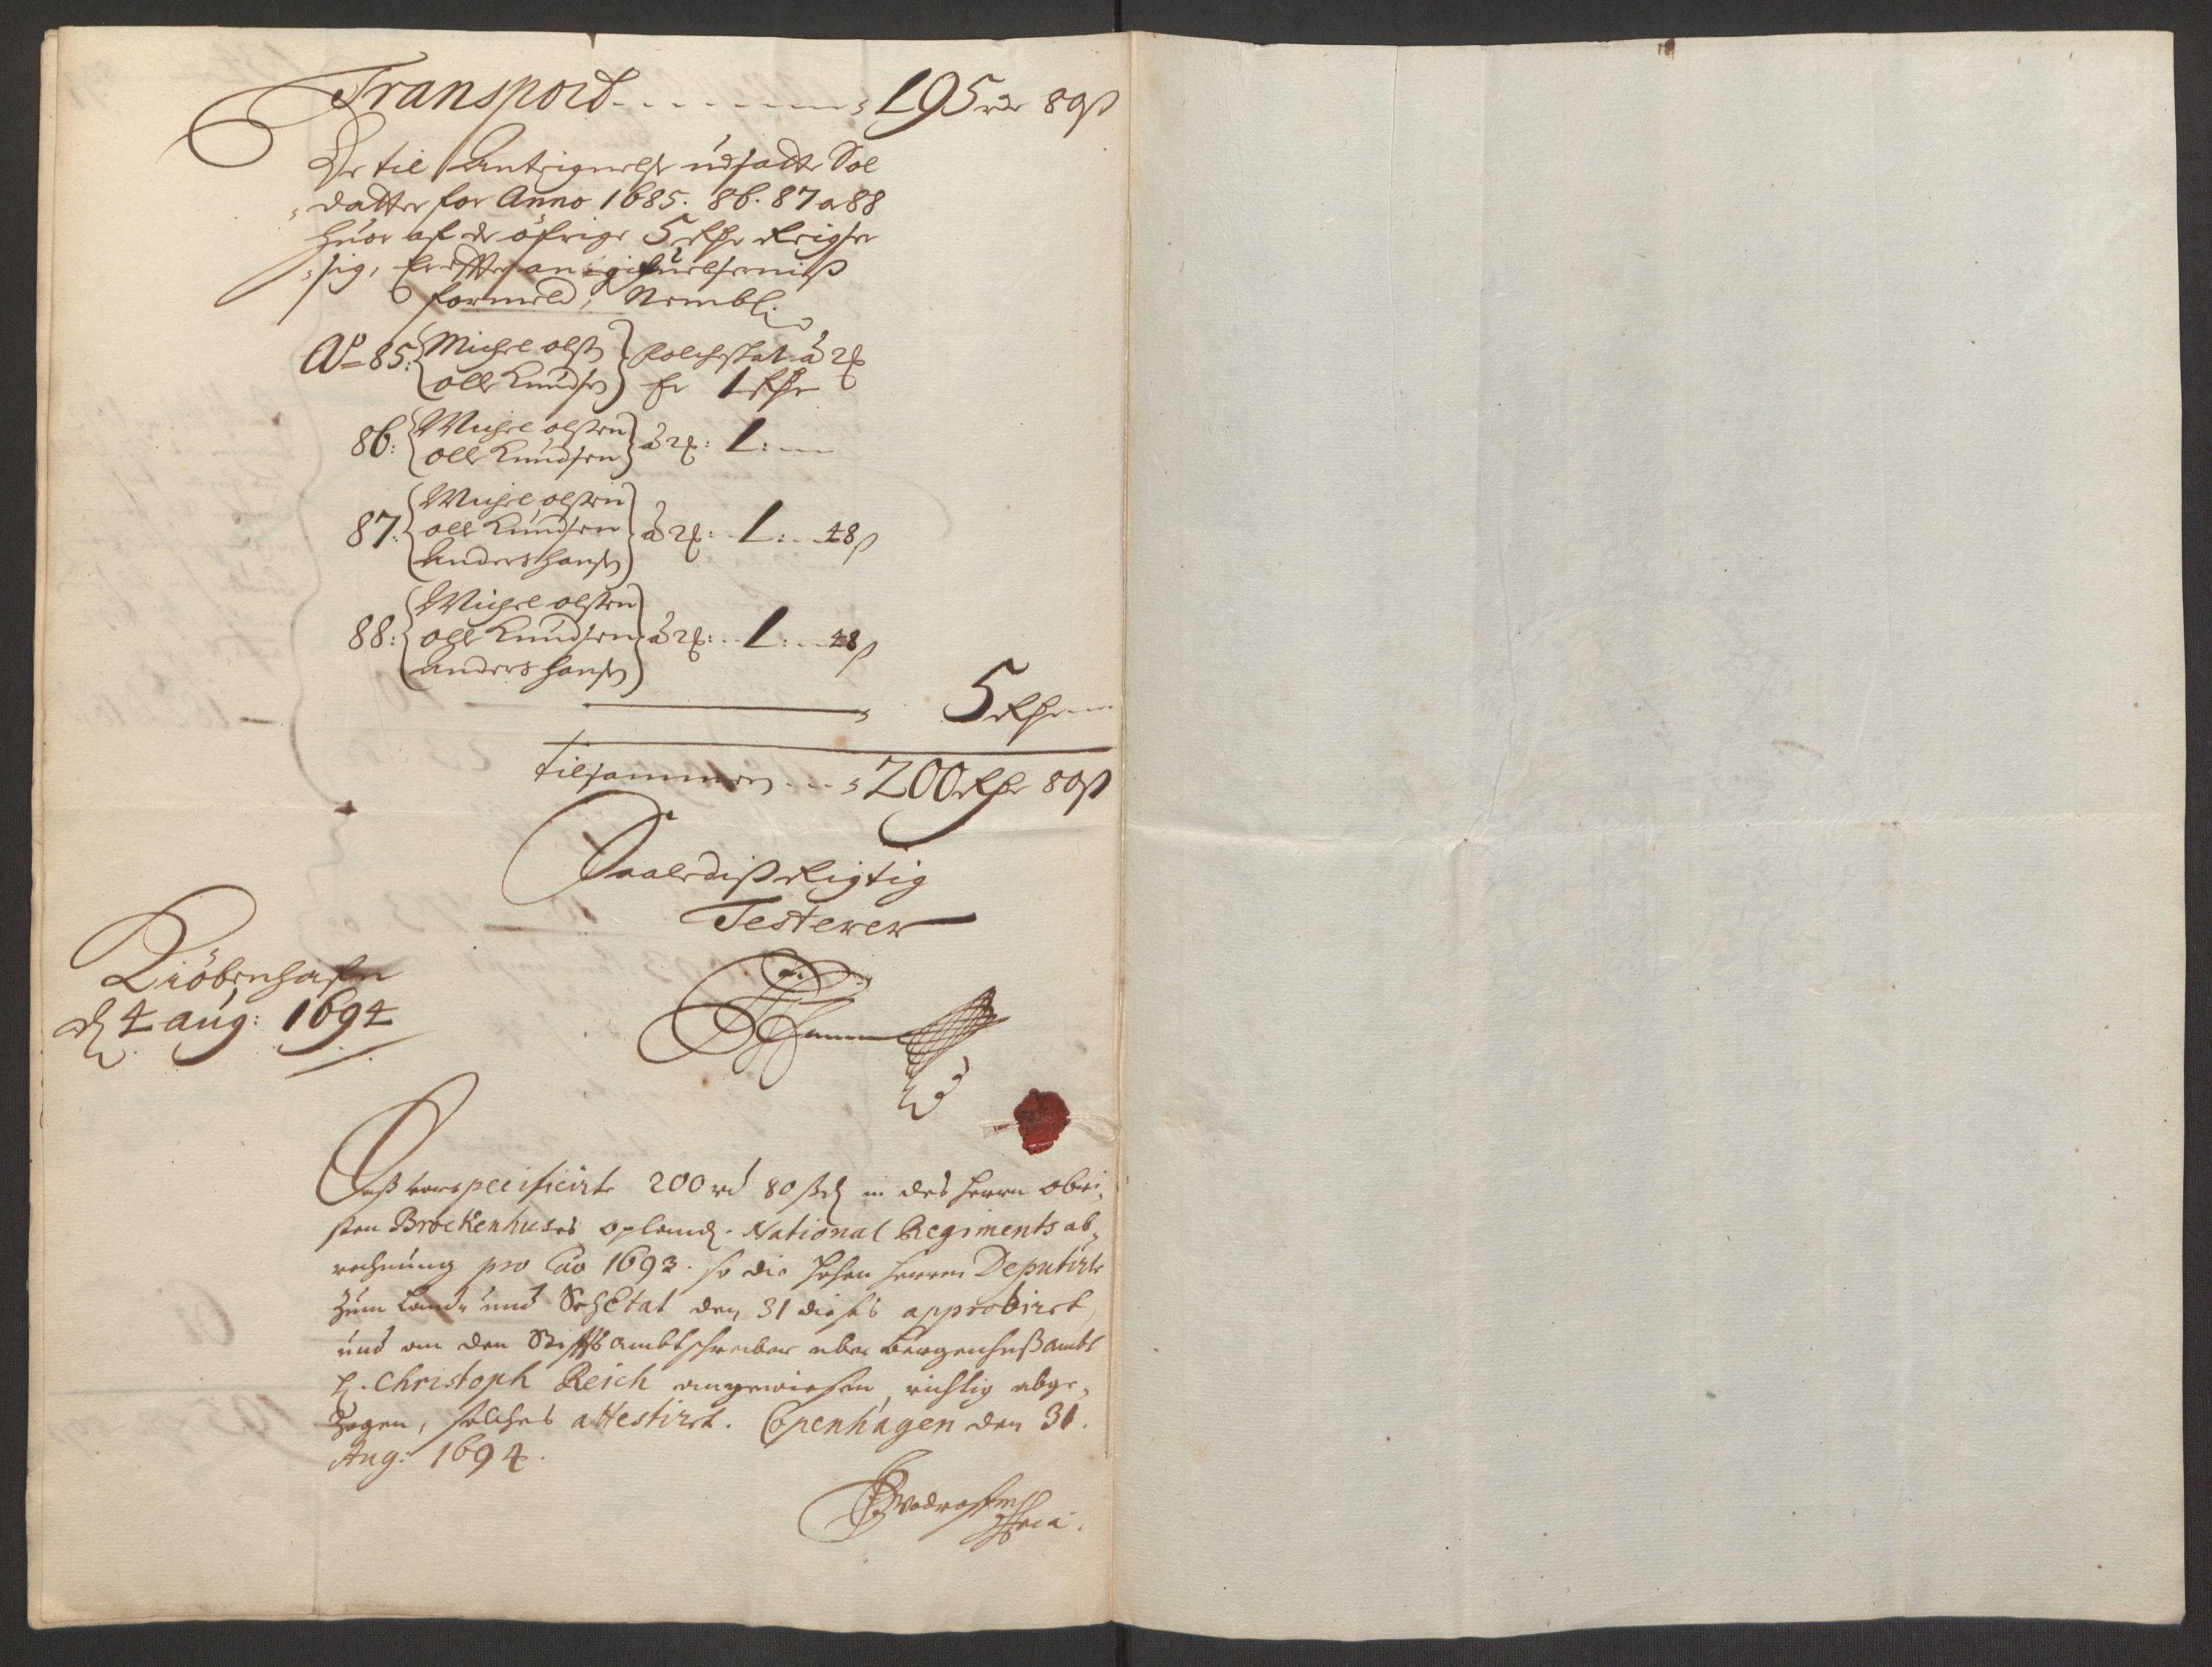 Transport - - - - - - - 195 rdr 80ß
De til Anteignelse udsatte Sol
datter for Anno 1685. 86. 87 a 88
huor af de öfrige 5 Rdr Reiser
sig, Er effter
formeld, Nembl:
Ao 85: Michel olss
olle Knudss
Er 1 Rdr
86: Michel olssen
olle Knudsen à 2℔: 1: —
87: Michel olssen
olle Knudsen
Anders hanss à 2℔: - 1: - 48 ß
88: Michel olssen
olle Knudsen
anders hanss à 2℔: - 1: - 48 ß
5 Rdr —
tilsammen - - 200 Rdr 80ß
Saaledis Rigtig
Testerer
Kiöbenhafn
d 4 aug: 1694
Daß vorspecificirte 200 rd 80 ß d in des Herrn Obri-
sten Brockenhuses opland. National Regiments ab-
rechnung pro Ao 1693. so die Hohen Herren Deputirte
zum Land- und SeeEtat den 31 dieses approbiret,
und an den Stiffts ambtschreiber uber Bergenhuß ambt
H. Christoph Reich angewiesen, richtig abge-
zogen, solches attestiret. Copenhagen den 31.
Aug: 1694.